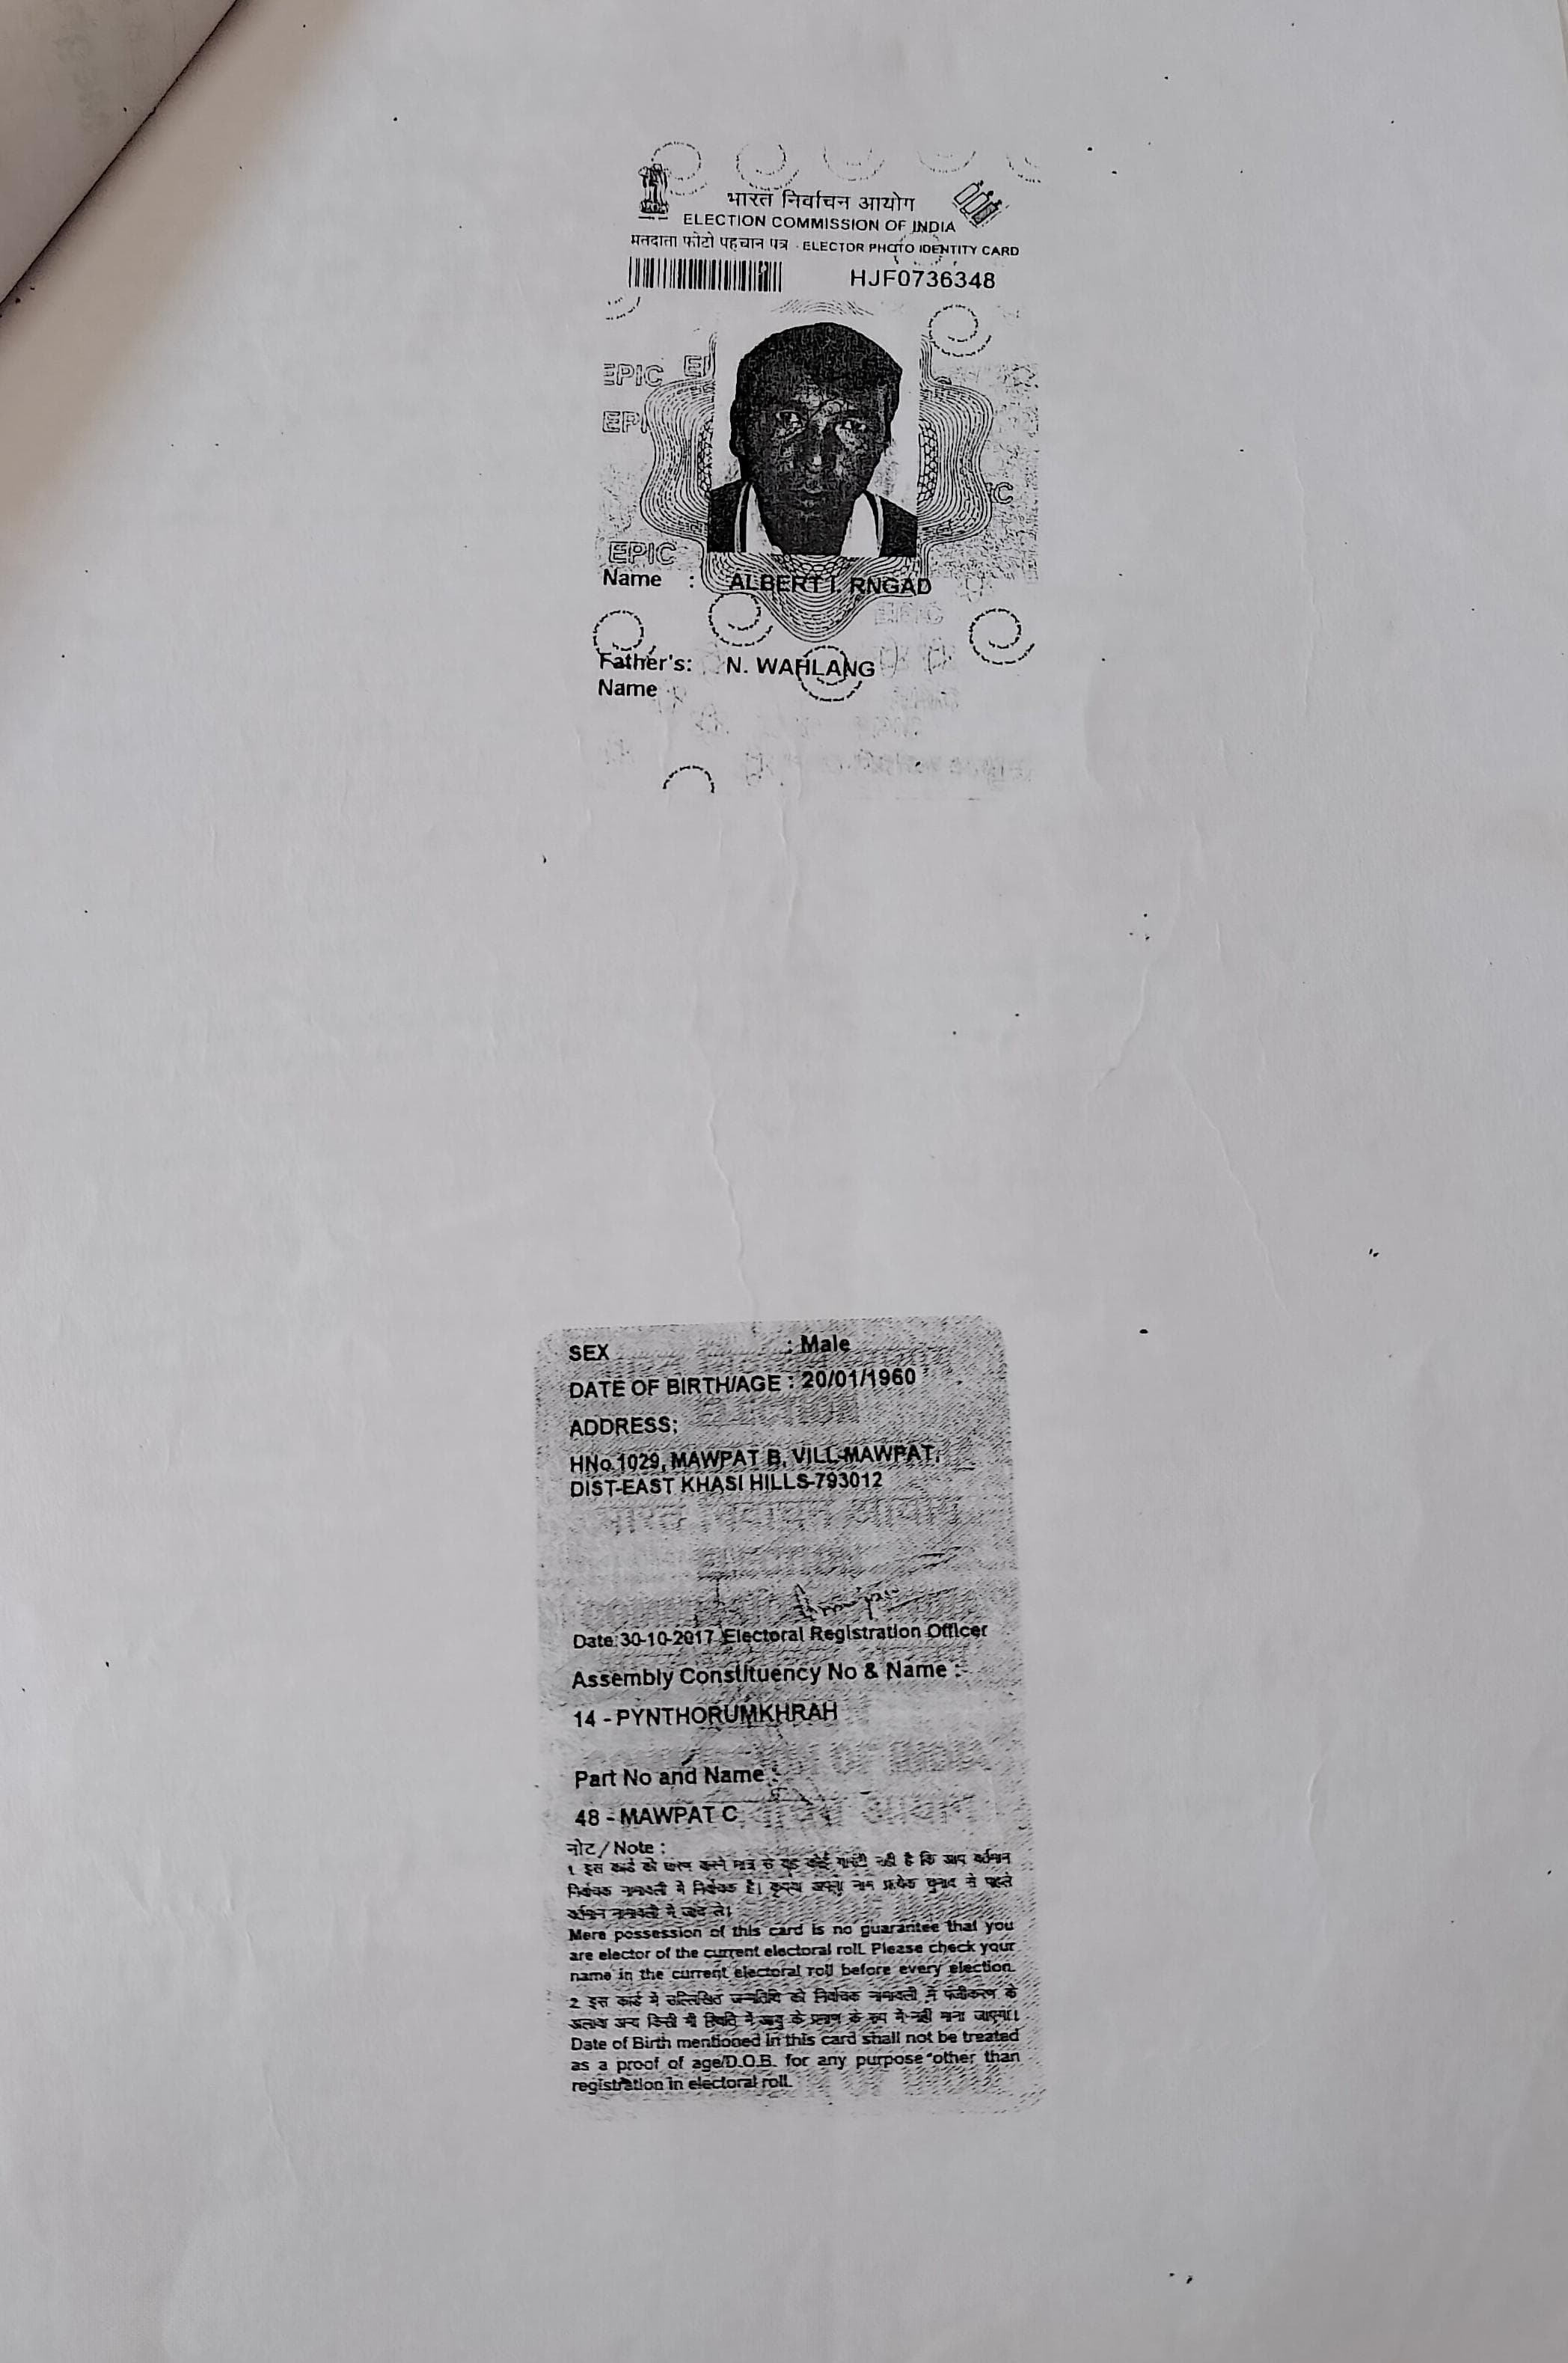 भारत निर्वाचन आयोग
ELECTION COMMISSION OF INDIA
मतदाता फोटो पहचान पत्र - ELECTOR PHOTO IDENTITY CARD
HJF0736348
EPIC
EPIC
Name : ALBERT I. RNGAD
EPIC
Father's: N. WAHLANG
Name
SEX : Male
DATE OF BIRTH/AGE : 20/01/1960
ADDRESS:
HNo.1029, MAWPAT B, VILL-MAWPAT,
DIST-EAST KHASI HILLS-793012
Date:30-10-2017 Electoral Registration Officer
Assembly Constituency No & Name :
14 - PYNTHORUMKHRAH
Part No and Name :
48 - MAWPAT C
नोट / Note :
1. इस कार्ड को धारण करने मात्र से यह कोई गारंटी नहीं है कि आप वर्तमान
निर्वाचक नामावली में निर्वाचक हैं। कृपया अपना नाम प्रत्येक चुनाव से पहले
वर्तमान नामावली में
Mere possession of this card is no guarantee that you
are elector of the current electoral roll. Please check your
name in the current electoral roll before every election.
2. इस कार्ड में उल्लिखित जन्मतिथि को निर्वाचक नामावली में पंजीकरण के
अलावा अन्य किसी भी स्थिति में आयु के प्रमाण के रूप में नहीं माना जाएगा।
Date of Birth mentioned in this card shall not be treated
as a proof of age/D.O.B. for any purpose other than
registration in electoral roll.